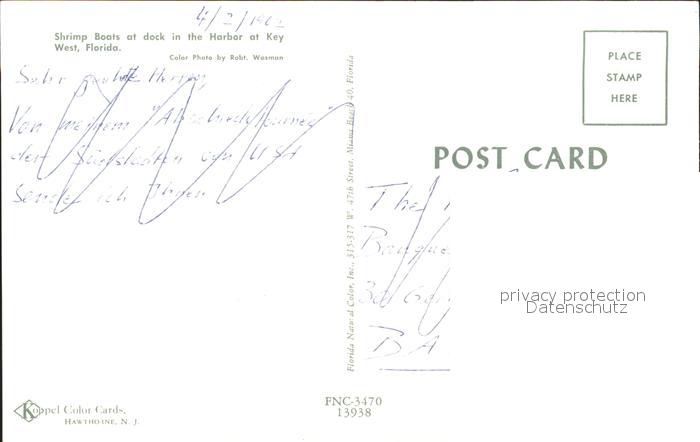 4/2/1962
Shrimp Boats at dock in the Harbor at Key
West, Florida.
Color Photo by Robt. Wasman
Sehr geehrte Herren,
Von meinem "Abschiedstournee"
den Südstaaten von USA
sende ich Ihnen
Florida Natural Color, Inc., 315-317 W. 47th Street, Miami Beach 40, Florida
PLACE
STAMP
HERE
POST CARD
The
Banque
30
BA
privacy protection
Datenschutz
Koppel Color Cards,
HAWTHORNE, N. J.
FNC-3470
13938